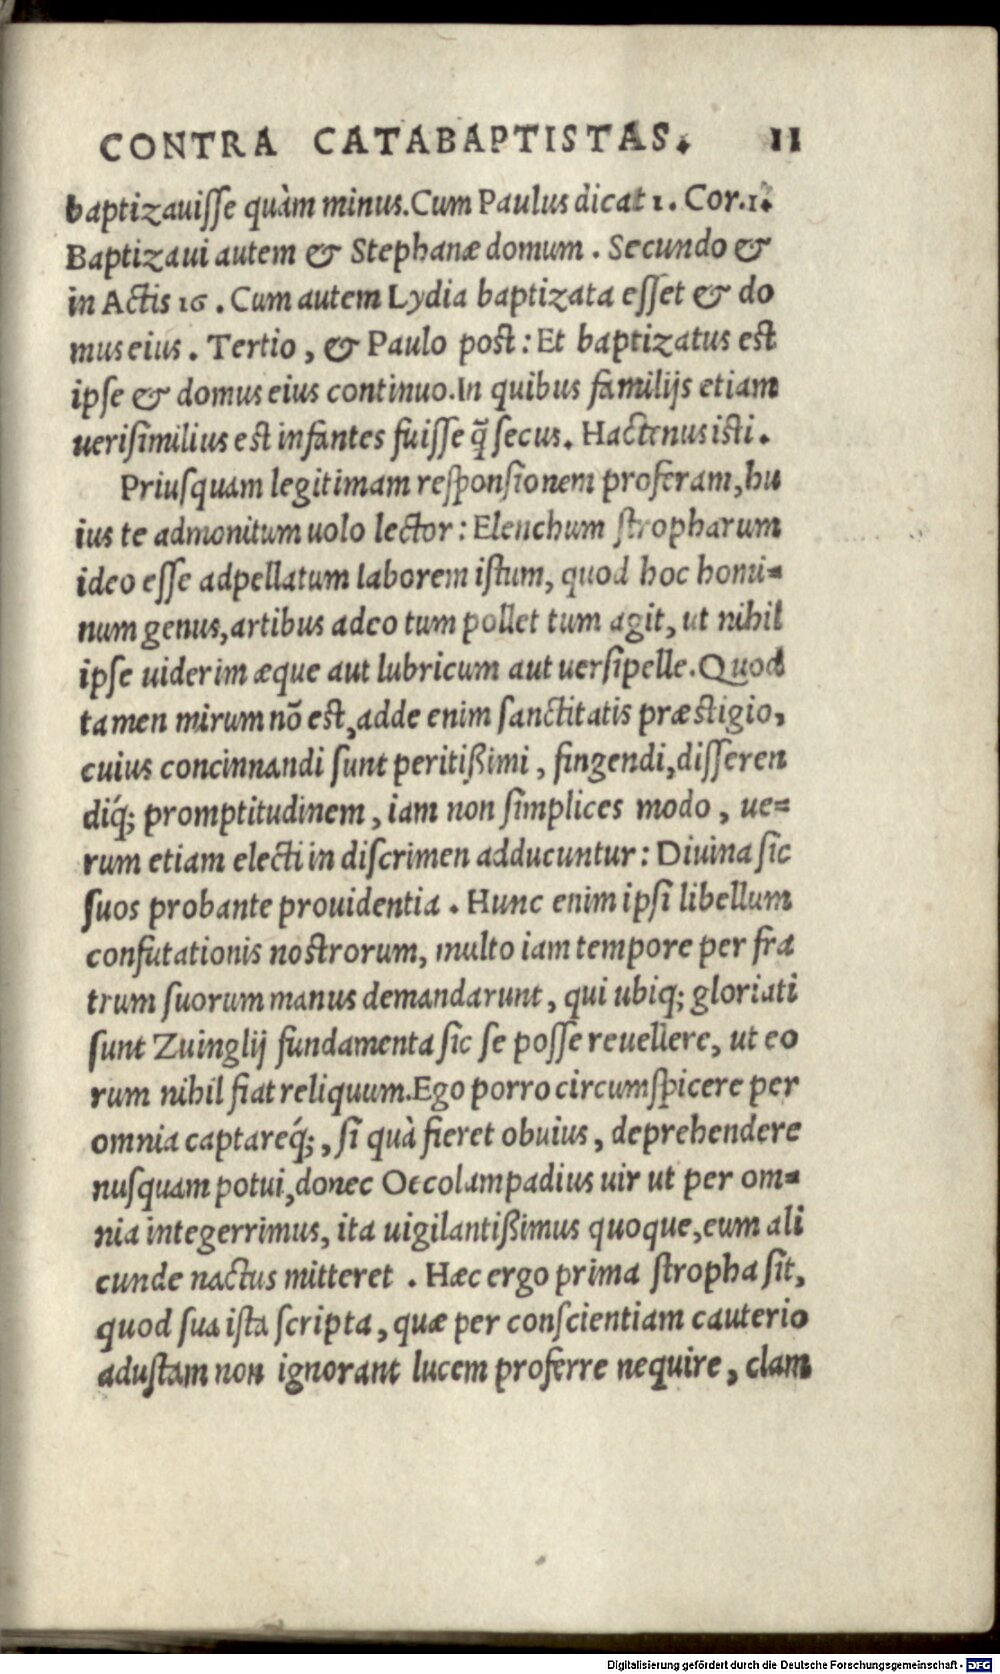 CONTRA CATABAPTISTAS. 11
baptizauiſſe quàm minus. Cum Paulus dicat 1. Cor. 1.
Baptizaui autem & Stephanæ domum. Secundo &
in Actis 16. Cum autem Lydia baptizata eſſet & do
mus eius. Tertio, & Paulo poſt: Et baptizatus eſt
ipſe & domus eius continuo. In quibus familijs etiam
ueriſimilius eſt infantes fuiſſe q̃ ſecus. Hactenus iſti.
Priuſquam legitimam reſponſionem proferam, hu
ius te admonitum uolo lector: Elenchum ſtropharum
ideo eſſe adpellatum laborem iſtum, quod hoc homi=
num genus, artibus adeo tum pollet tum agit, ut nihil
ipſe uiderim æque aut lubricum aut uerſipelle. Quod
tamen mirum nõ eſt, adde enim ſanctitatis præſtigio,
cuius concinnandi ſunt peritißimi, fingendi, diſſeren
diq́; promptitudinem, iam non ſimplices modo, ue=
rum etiam electi in diſcrimen adducuntur: Diuina ſic
ſuos probante prouidentia. Hunc enim ipſi libellum
confutationis noſtrorum, multo iam tempore per fra
trum ſuorum manus demandarunt, qui ubiq; gloriati
ſunt Zuinglij fundamenta ſic ſe poſſe reuellere, ut eo
rum nihil fiat reliquum. Ego porro circumſpicere per
omnia captareq́;, ſi quà fieret obuius, deprehendere
nuſquam potui, donec Oecolampadius uir ut per om=
nia integerrimus, ita uigilantißimus quoque, eum ali
cunde nactus mitteret. Hæc ergo prima ſtropha ſit,
quod ſua iſta ſcripta, quæ per conſcientiam cauterio
aduſtam non ignorant lucem proferre nequire, clam
Digitalisierung gefördert durch die Deutsche Forschungsgemeinschaft - DFG